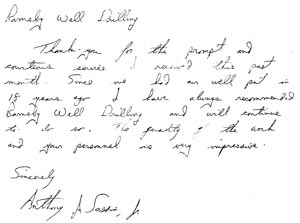 Ramsby Well Drilling
Thank-you for the prompt and
courteous service I received this past
month. Since we had our well put in
18 years ago I have always recommended
Ramsby Well Drilling and will continue
to do so. The quality of the work
and your personnel is very impressive.
Sincerely
Anthony Jr.